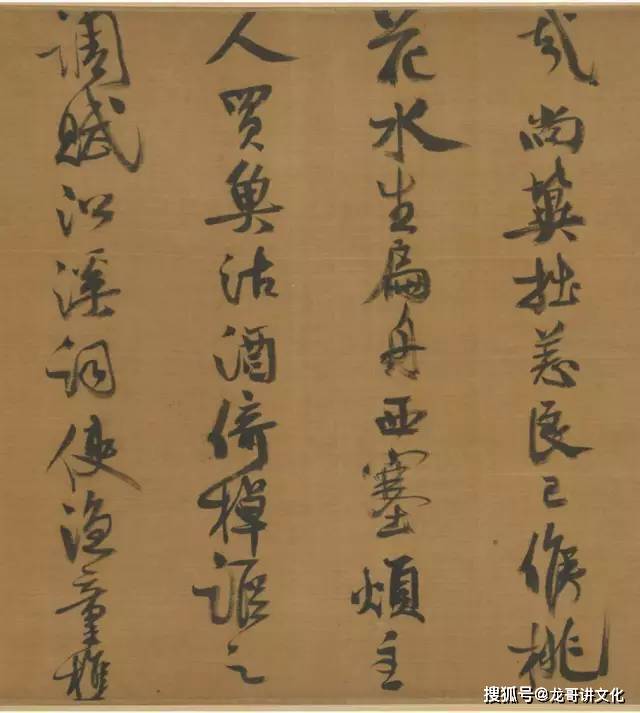 哉尚冀拙恙良已候桃
花水生扁舟西塞煩主
人買魚沽酒倚棹謳之
調賦沿溪詞使漁童樵
搜狐号@龙哥讲文化